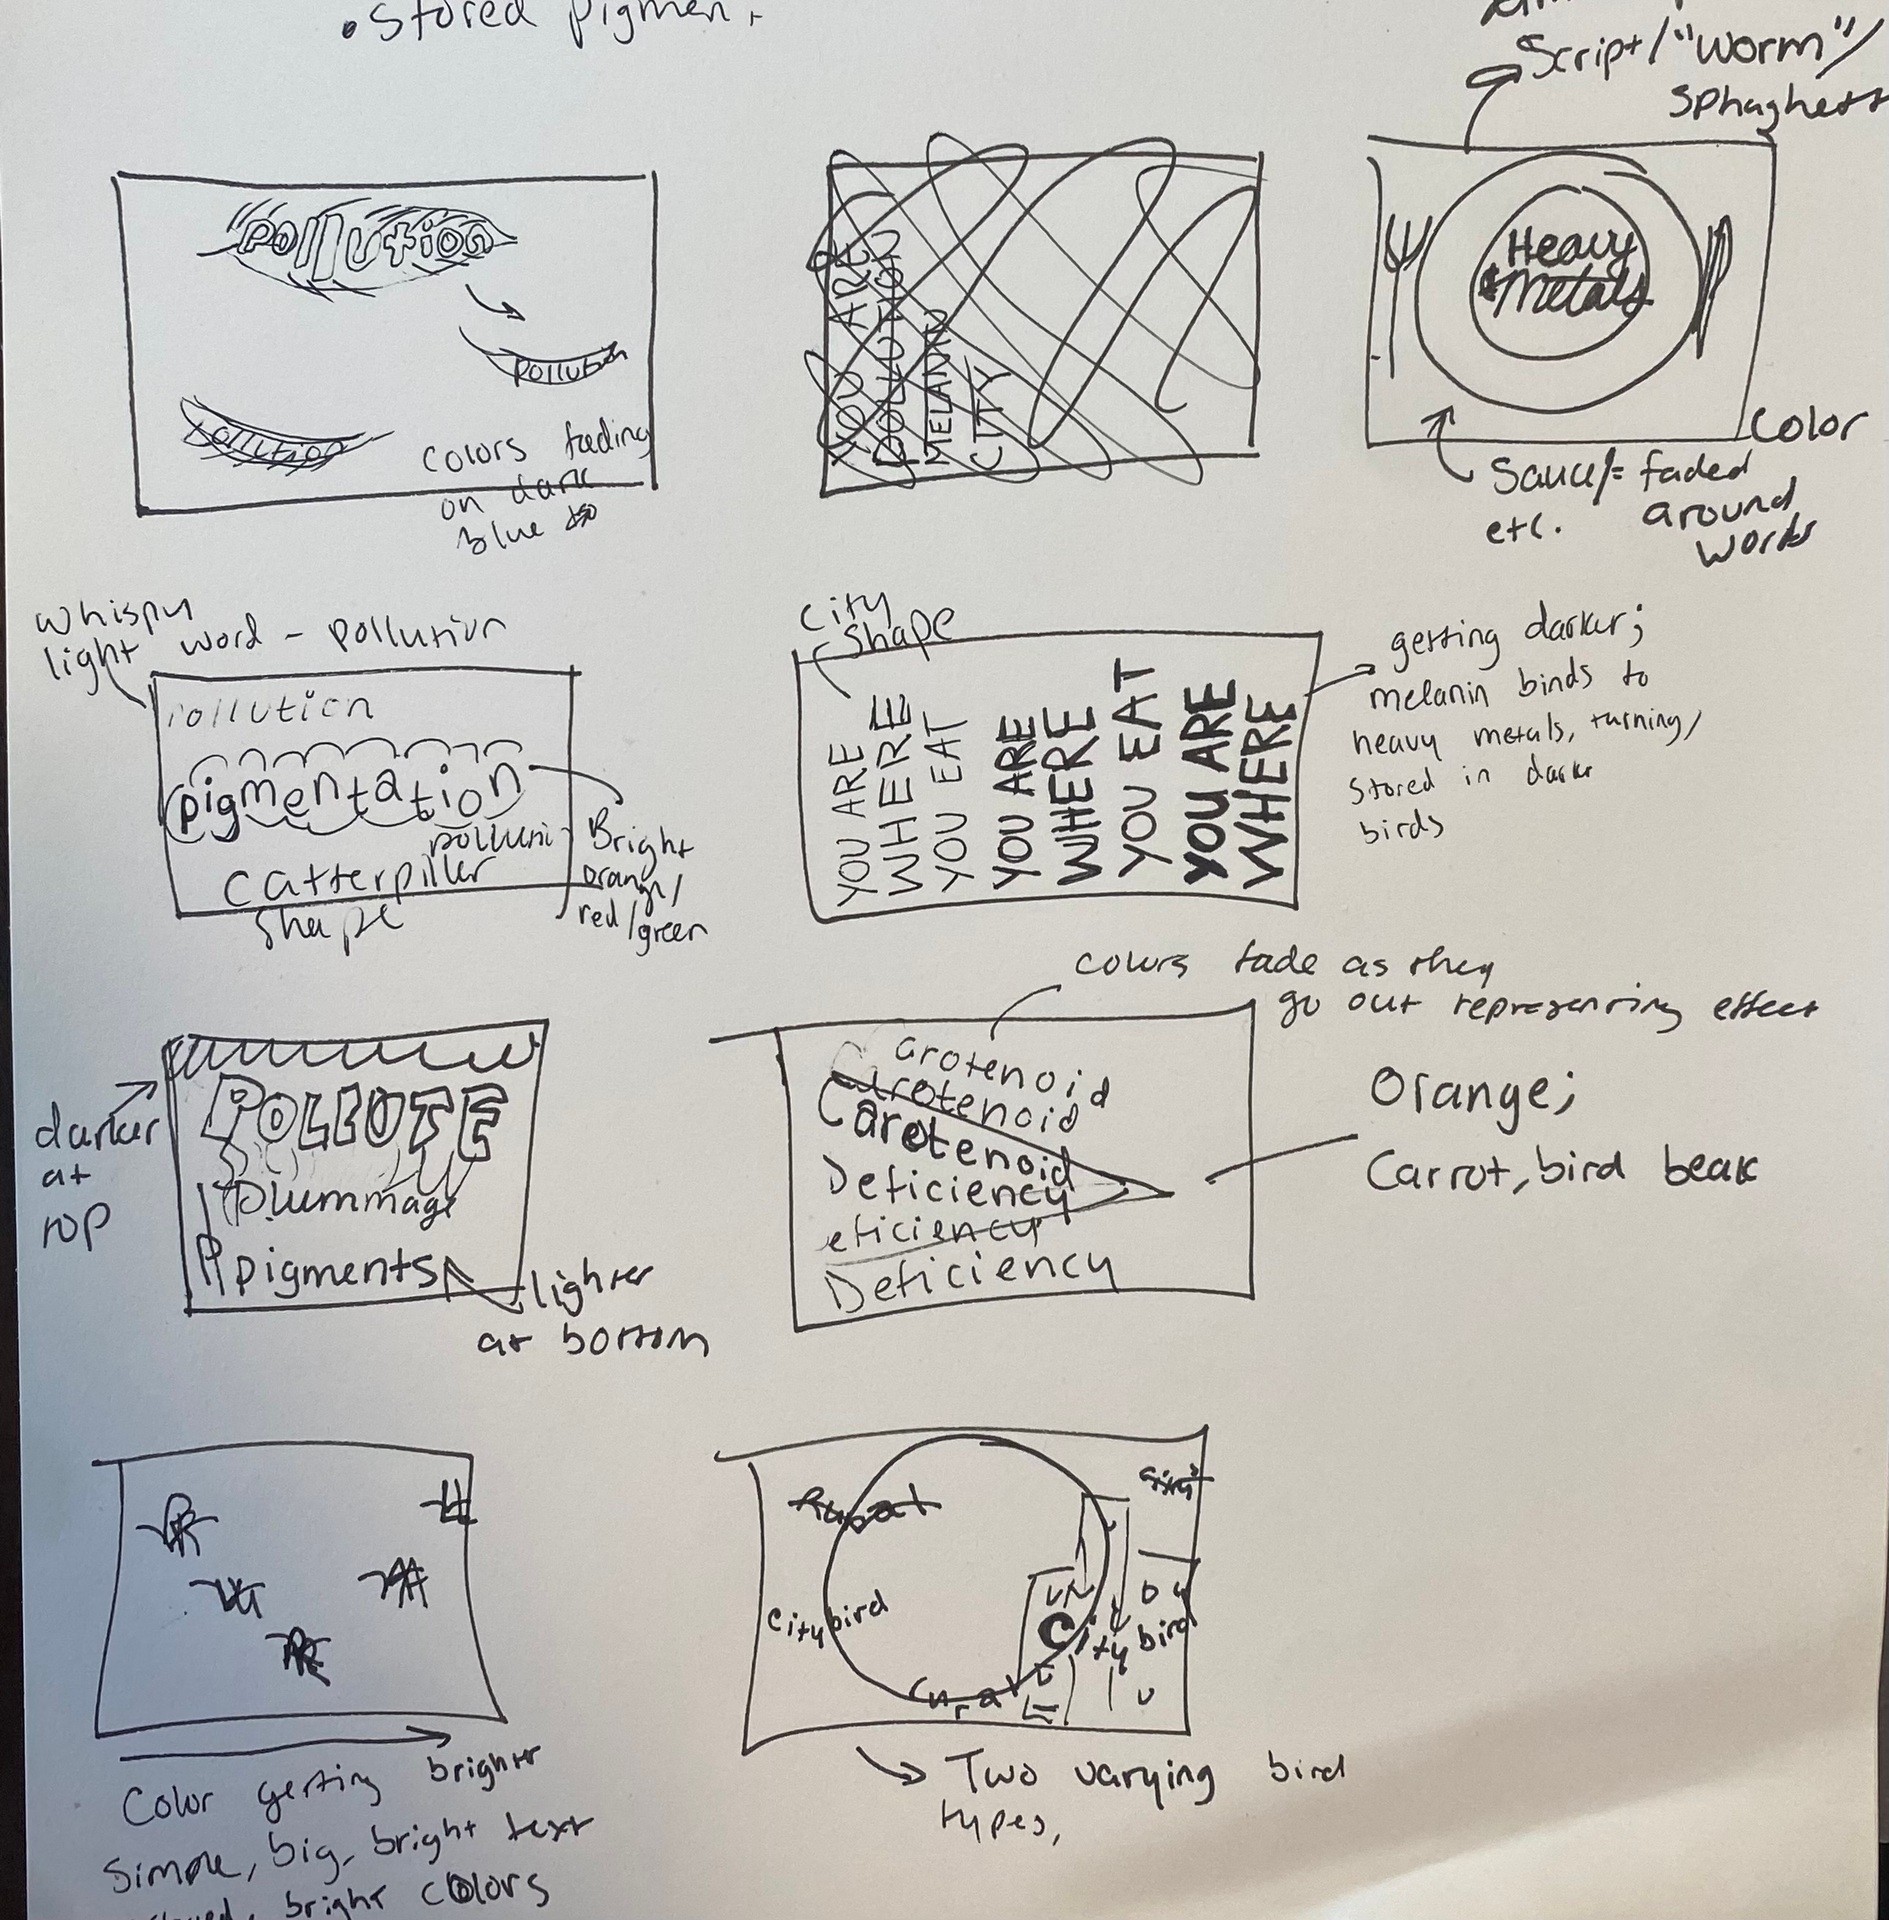 • Stored pigment
Script/"worm"/
Sphaghett
Pollution
Pollution
Pollution
Colors fading
on dark
blue
YOU ARE
POLLUTION
MELANIN
CITY
Heavy
Metals
Color
Sauce/= faded
etc. around
words
Whispy
light word - pollution
Pollution
pigmentation
polluti
Catterpiller
shape
Bright
orange/
red/green
City
Shape
YOU ARE
WHERE
YOU EAT
YOU ARE
WHERE
YOU EAT
YOU ARE
WHERE
getting darker;
melanin binds to
heavy metals, turning/
stored in darker
birds
darker
at
top
POLLUTE
Plummage
Ppigments
lighter
at bottom
colors fade as they
go out representing effect
arotenoid
Carotenoid
Carotenoid
Deficiency
eficiency
Deficiency
Orange;
Carrot, bird beak
Color getting brighter
Simple, big, bright text
bright colors
City bird
City bird
rural
Two varying bird
types,